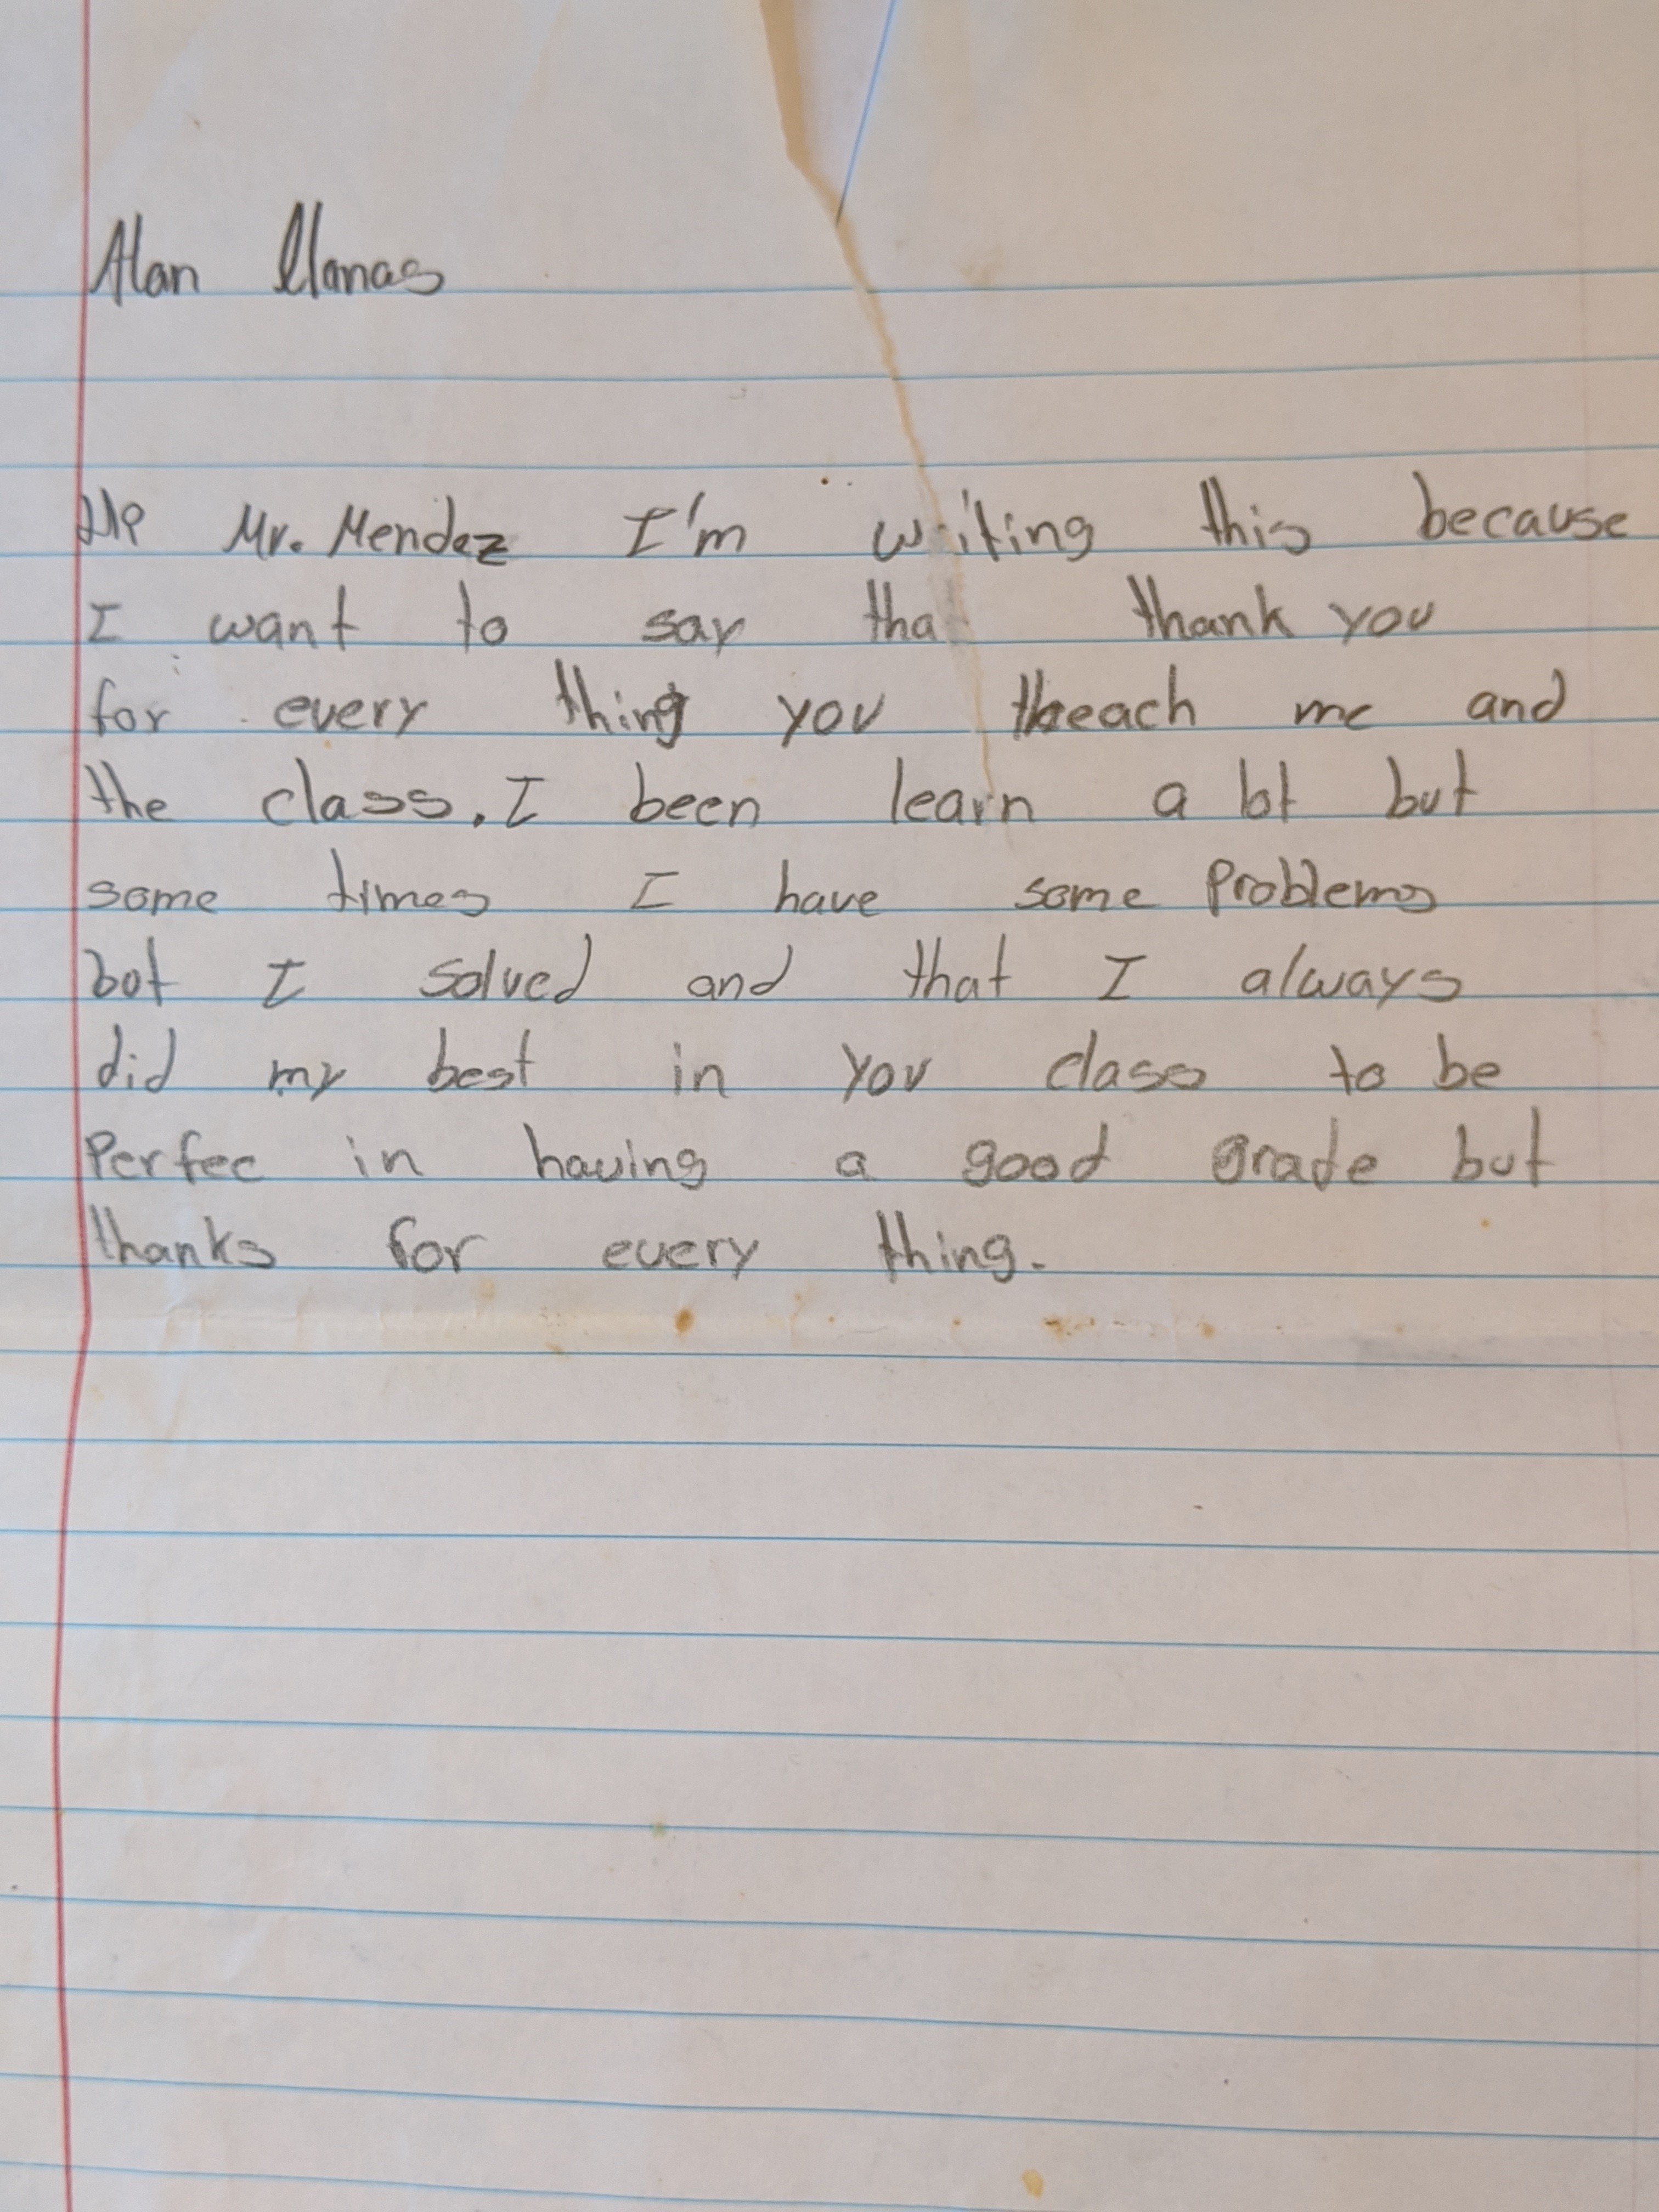 Alan llanas
Hi Mr. Mendez I'm writing this because
I want to say that thank you
for every thing you theach me and
the class. I been learn a lot but
some times I have some Problems
bot I solved and that I always
did my best in you class to be
Perfec in having a good grade but
thanks for every thing.